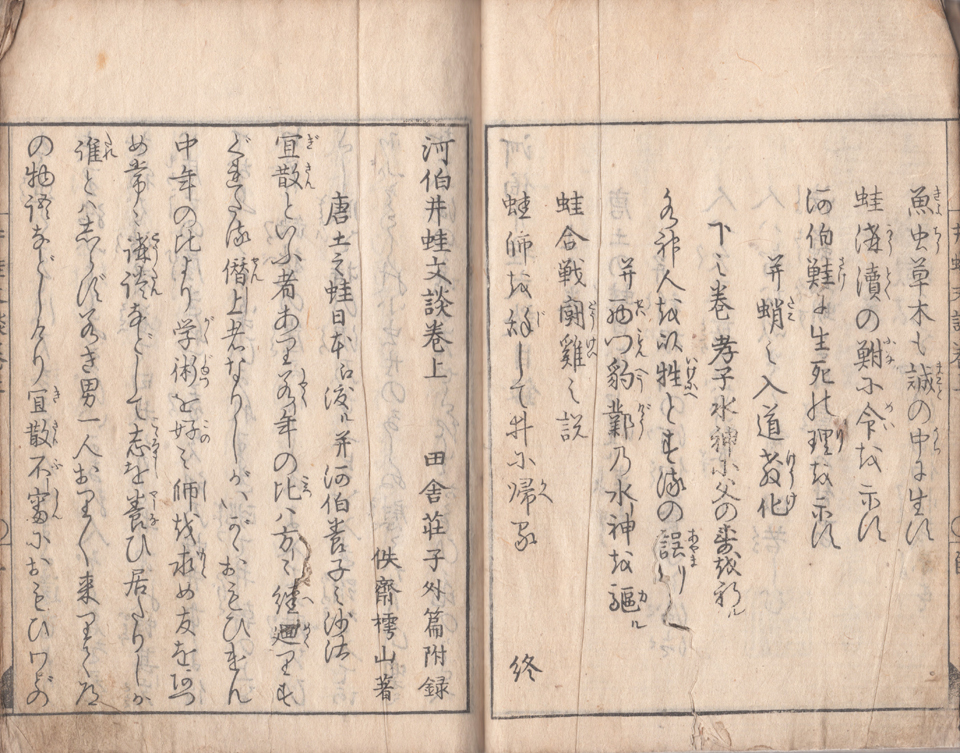 魚虫草木も誠の中に生ル
蛙海瀆の鮒に令を示ス
河伯鮭に生死の理を示ス
并蛸之入道教化
下之巻 孝子水神に父の
各邪人を以牲とする の誤
并西門豹鄴乃水神を駆ル
蛙合戦 闘雞之説
蛙師を辞して井に帰ル
終
河伯井蛙文談巻上 田舎荘子外篇附録
佚齋樗山著
唐土之蛙日本に渡ル并河伯養子之沙汰
宜散といふ者あり若年の比ハ方々経廻りす
ぐれたる僭上者なりしが、いかゞおもひけん
中年の比より学術を好み師を求め友を
め常に講談などして志を養ひ居たりしが
誰とハしらず若き男一人おりく来りて
の物語などしけり宜散不審におもひ